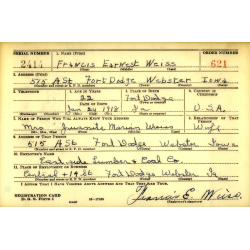 SERIAL NUMBER
1. NAME (Print)
ORDER NUMBER
2414
Francis Earnest Weiss
621
2. ADDRESS (Print)
515 A St. Fort Dodge Webster Iowa
3. TELEPHONE
4. AGE IN YEARS
5. PLACE OF BIRTH
6. COUNTRY OF CITIZENSHIP
22
Fort Dodge
DATE OF BIRTH
Jan 24 1918
Ia
U.S.A.
7. NAME OF PERSON WHO WILL ALWAYS KNOW YOUR ADDRESS
8. RELATIONSHIP OF THAT PERSON
Mrs Marian Weiss
Wife
9. ADDRESS OF THAT PERSON
515 A St Fort Dodge Webster Iowa
10. EMPLOYER'S NAME
Lumber & Coal Co.
11. PLACE OF EMPLOYMENT OR BUSINESS
Fort Dodge Webster Ia
I AFFIRM THAT I HAVE VERIFIED ABOVE ANSWERS AND THAT THEY ARE TRUE.
Francis E. Weiss